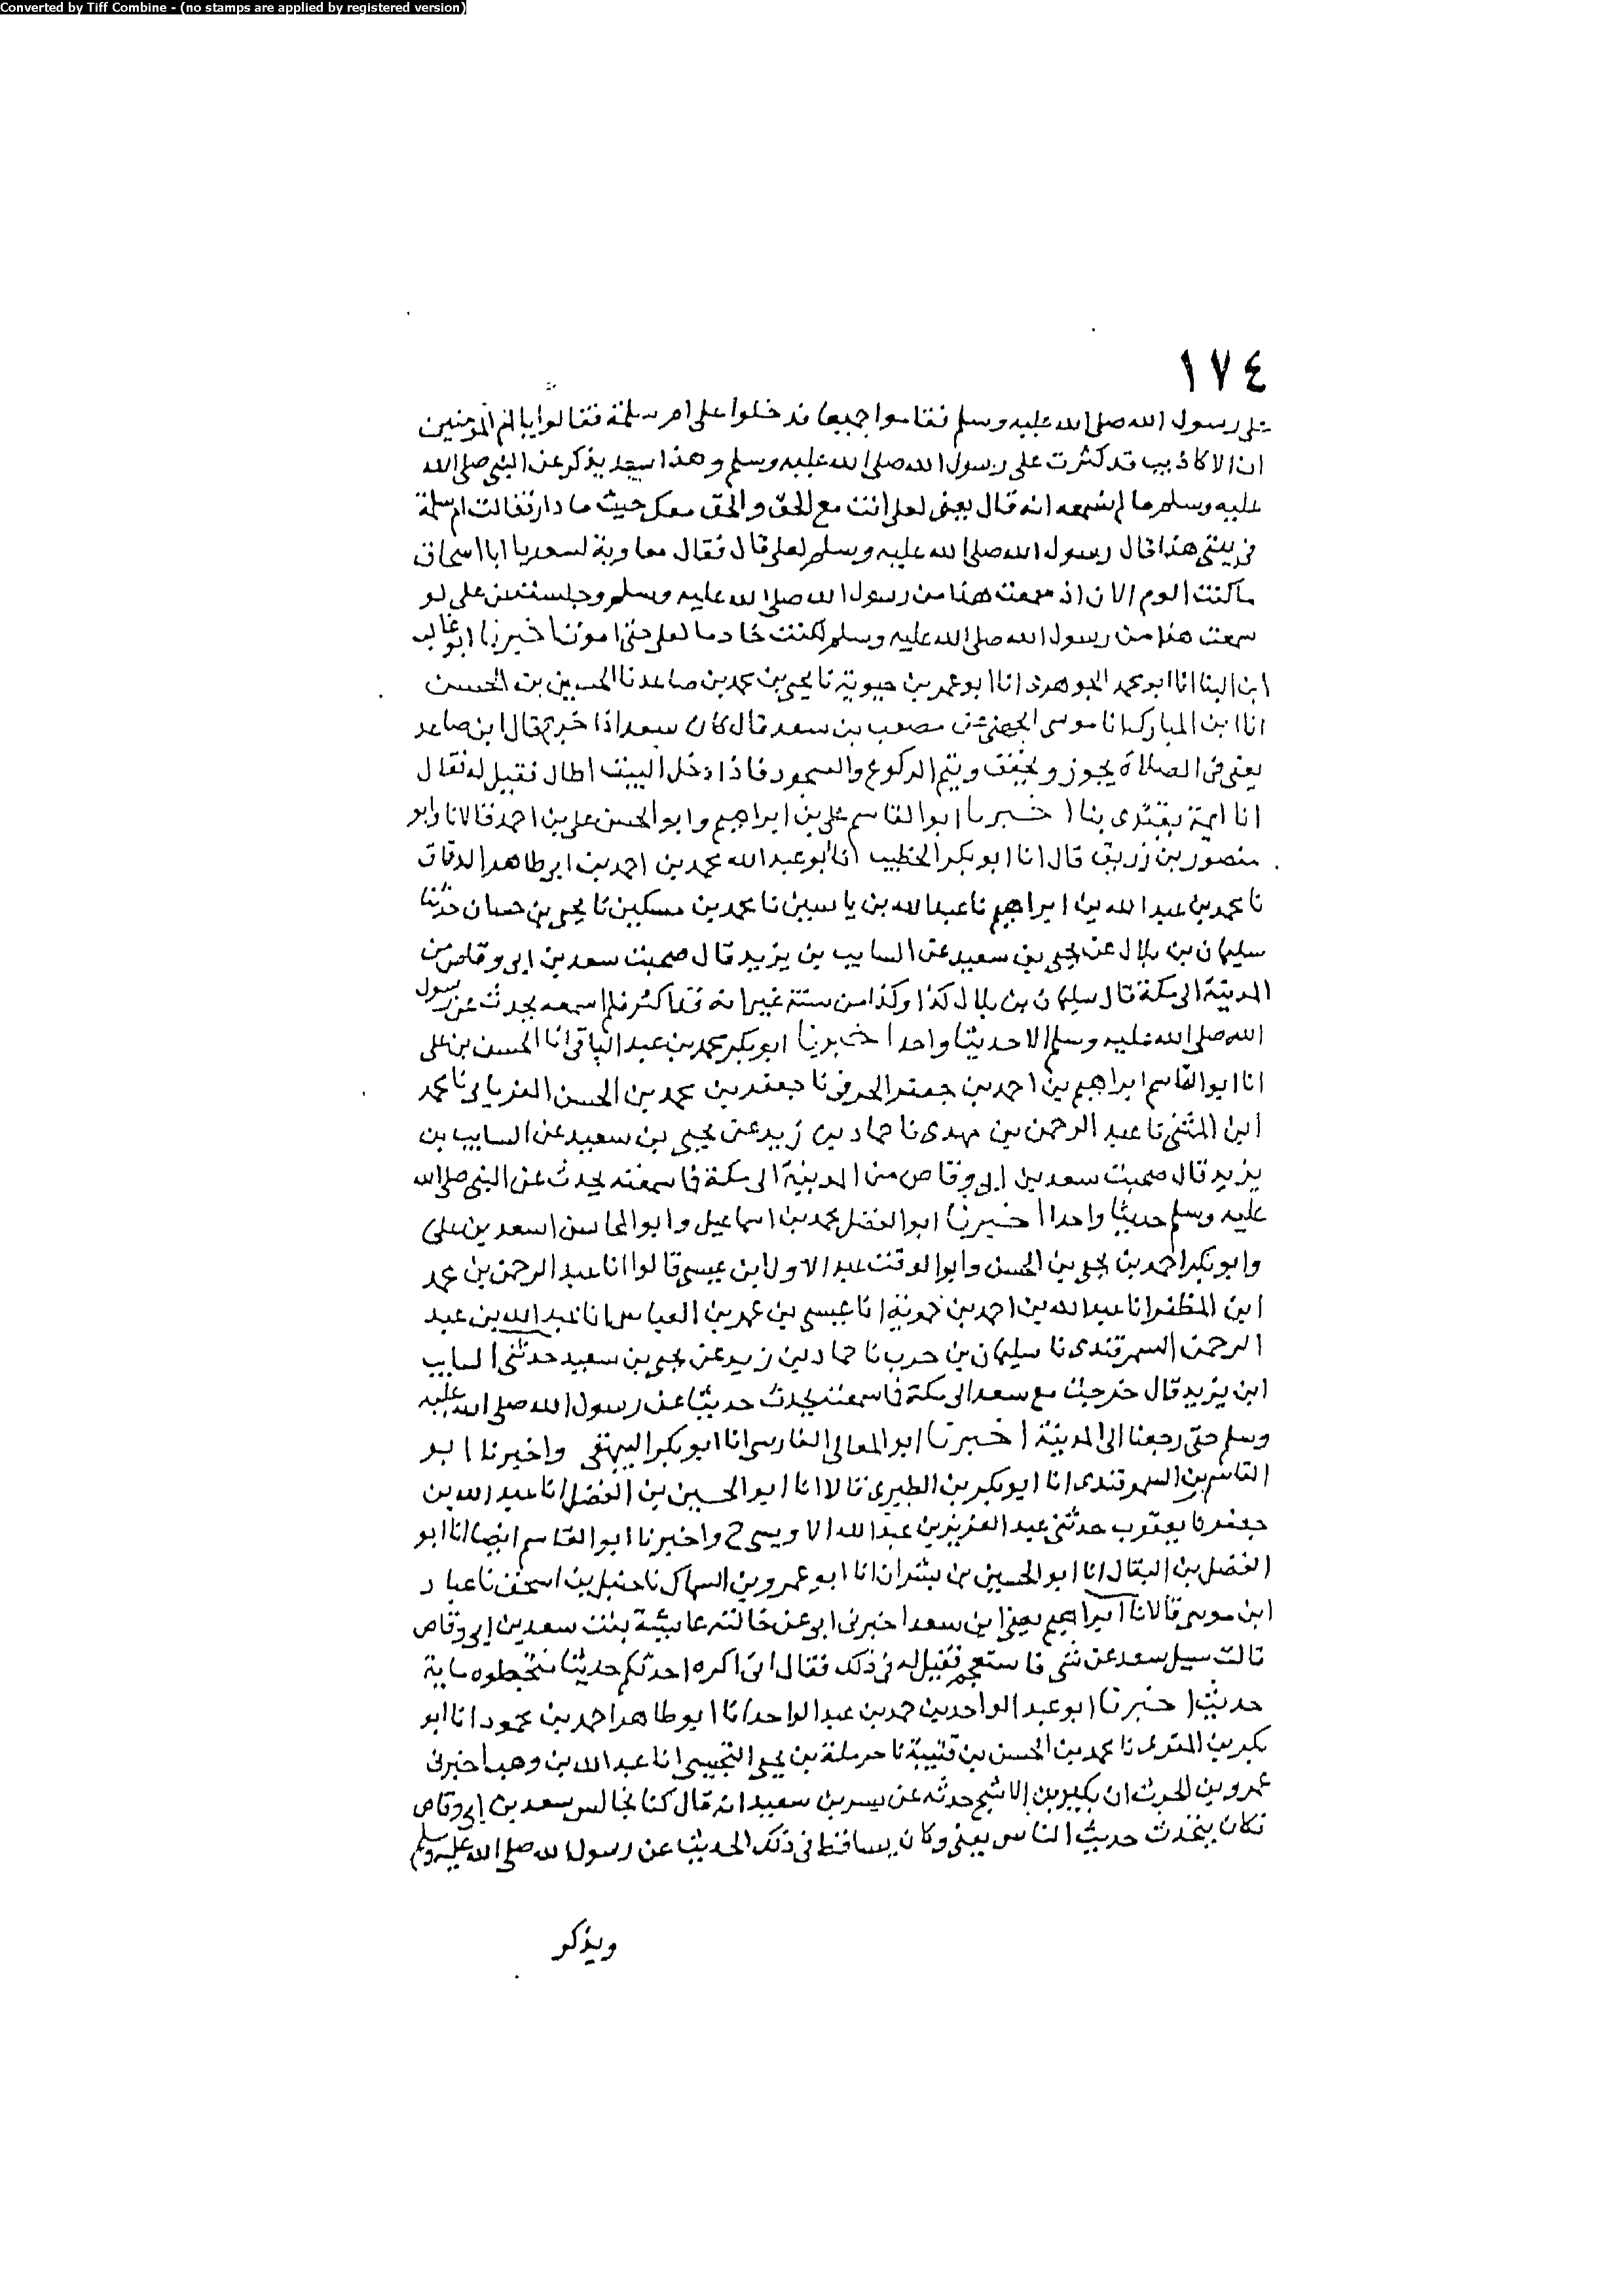 Converted by Tiff Combine - (no stamps are applied by registered version)
١٧٤
على رسول الله صلى الله عليه وسلم فقاموا جميعا فدخلوا على ام سلمة فقالوا يا ام المؤمنين
ان الاكاذيب قد كثرت على رسول الله صلى الله عليه وسلم وهذا سعد يذكر عن النبي صلى الله
عليه وسلم ما لم نسمعه انه قال يعني لعلي انت مع الحق والحق معك حيث ما دار فقالت ام سلمة
في بيتي هذا قال رسول الله صلى الله عليه وسلم لعلي قال فقال معاوية لسعد يا ابا اسحاق
ما كنت الوم الان اذ سمعت هذا من رسول الله صلى الله عليه وسلم وجلست عن علي لو
سمعت هذا من رسول الله صلى الله عليه وسلم لكنت خادما لعلي حتى اموت اخبرنا ابو غالب
ابن البنا انا ابو محمد الجوهري انا ابو عمر بن حيوية نا يحيى بن محمد بن صاعد نا الحسين بن الحسن
انا ابن المبارك انا موسى الجهني عن مصعب بن سعد قال كان سعد اذا خرج قال ابن صاعد
يعني في الصلاة يجوز ويخفف ويتم الركوع والسجود فاذا دخل البيت اطال فقيل له فقال
انا ايمة يقتدى بنا اخبرنا ابو القاسم علي بن ابراهيم وابو الحسن علي بن احمد قالا نا وابو
منصور بن زريق قال انا ابو بكر الخطيب انا ابو عبد الله محمد بن احمد بن ابي طاهر الدقاق
نا محمد بن عبد الله بن ابراهيم نا عبد الله بن ياسين نا محمد بن مسكين نا يحيى بن حسان حدثنا
سليمان بن بلال عن يحيى بن سعيد عن السايب بن يزيد قال صحبت سعد بن ابي وقاص من
المدينة الى مكة قال سليمان بن بلال كذا وكذا من سنة غير انه قد اكثر فلم اسمعه يحدث عن رسول
الله صلى الله عليه وسلم الا حديثا واحدا اخبرنا ابو بكر محمد بن عبد الباقي انا الحسن بن علي
انا ابو القاسم ابراهيم بن احمد بن جعفر الخرقي نا جعفر بن محمد بن الحسن الفريابي نا محمد
ابن المثنى نا عبد الرحمن بن مهدي نا حماد بن زيد عن يحيى بن سعيد عن السايب بن
يزيد قال صحبت سعد بن ابي وقاص من المدينة الى مكة فما سمعته يحدث عن النبي صلى الله
عليه وسلم حديثا واحدا اخبرنا ابو الفضل محمد بن اسماعيل وابو المحاسن اسعد بن علي
وابو بكر احمد بن يحيى بن الحسن وابو الوقت عبد الاول ابن عيسى قالوا انا عبد الرحمن بن محمد
ابن المظفر انا عبد الله بن احمد بن حموية انا عيسى بن عمر بن العباس انا عبد الله بن عبد
الرحمن السمرقندي نا سليمان بن حرب نا حماد بن زيد عن يحيى بن سعيد حدثني السايب
ابن يزيد قال خرجت مع سعد الى مكة فما سمعته يحدث حديثا عن رسول الله صلى الله عليه
وسلم حتى رجعنا الى المدينة اخبرنا ابو المعالي الفارسي انا ابو بكر البيهقي واخبرنا ابو
القاسم بن السمرقندي انا ابو بكر بن الطبري قالا انا ابو الحسين بن الفضل انا عبد الله بن
جعفر نا يعقوب حدثني عبد العزيز بن عبد الله الاويسي ح واخبرنا ابو القاسم ايضا انا ابو
الفضل بن البقال انا ابو الحسين بن بشران انا ابو عمرو بن السماك نا حنبل بن اسحق نا عباد
ابن موسى قالا نا ابراهيم يعني ابن سعد اخبرني ابي عن خالته عايشة بنت سعد بن ابي وقاص
قالت سيل سعد عن شي فاستعجم فقيل له في ذلك فقال اني اكره احدثكم حديثا فتخطوه ماية
حديث اخبرنا ابو عبد الواحد بن حمد بن عبد الواحد انا ابو طاهر احمد بن محمود انا ابو
بكر بن المقرى نا محمد بن الحسن بن قتيبة نا حرملة بن يحيى التجيبي انا عبد الله بن وهب اخبرني
عمرو بن الحرث ان بكير بن الاشج حدثه عن بسر بن سعيد انه قال كنا نجالس سعد بن ابي وقاص
فكان يتحدث حديث الناس يعني وكان يساقط في ذلك الحديث عن رسول الله صلى الله عليه وسلم
ويذكر